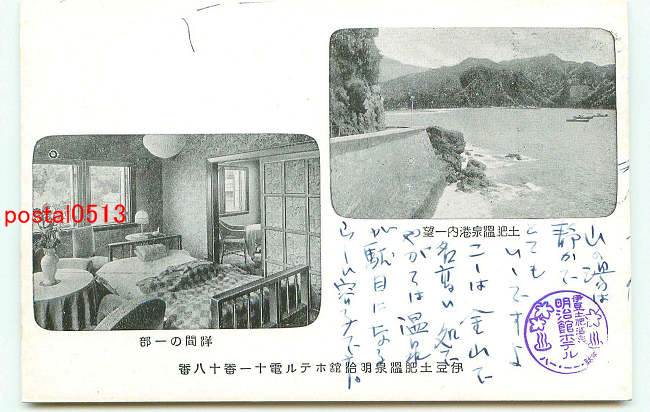 postal0513
望一内港泉溫肥土
部一の間洋
番八十番一十電ルテホ舘治明泉溫肥土豆伊
山の湯は
静かで
とても
いいですよ
こゝは金山で
名高い処で
やがては温泉
が駄目になる
らしい
伊豆土肥温泉
明治館ホテル